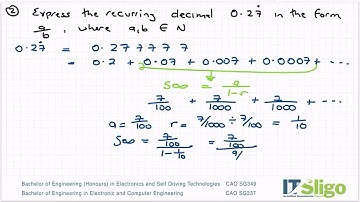 ② Express the recurring decimal 0.27̇ in the form
a/b, where a,b ∈ N
0.27̇ = 0.277777
= 0.2 + 0.07 + 0.007 + 0.0007 + ...
S∞ = a/(1-r)
7/100 + 7/1000 + 7/10000 + ...
a = 7/100 r = 7/1000 ÷ 7/100 = 1/10
S∞ = (7/100)/(1-1/10) = (7/100)/(9/
Bachelor of Engineering (Honours) in Electronics and Self Driving Technologies CAO SG349
Bachelor of Engineering in Electronic and Computer Engineering CAO SG337
IT Sligo